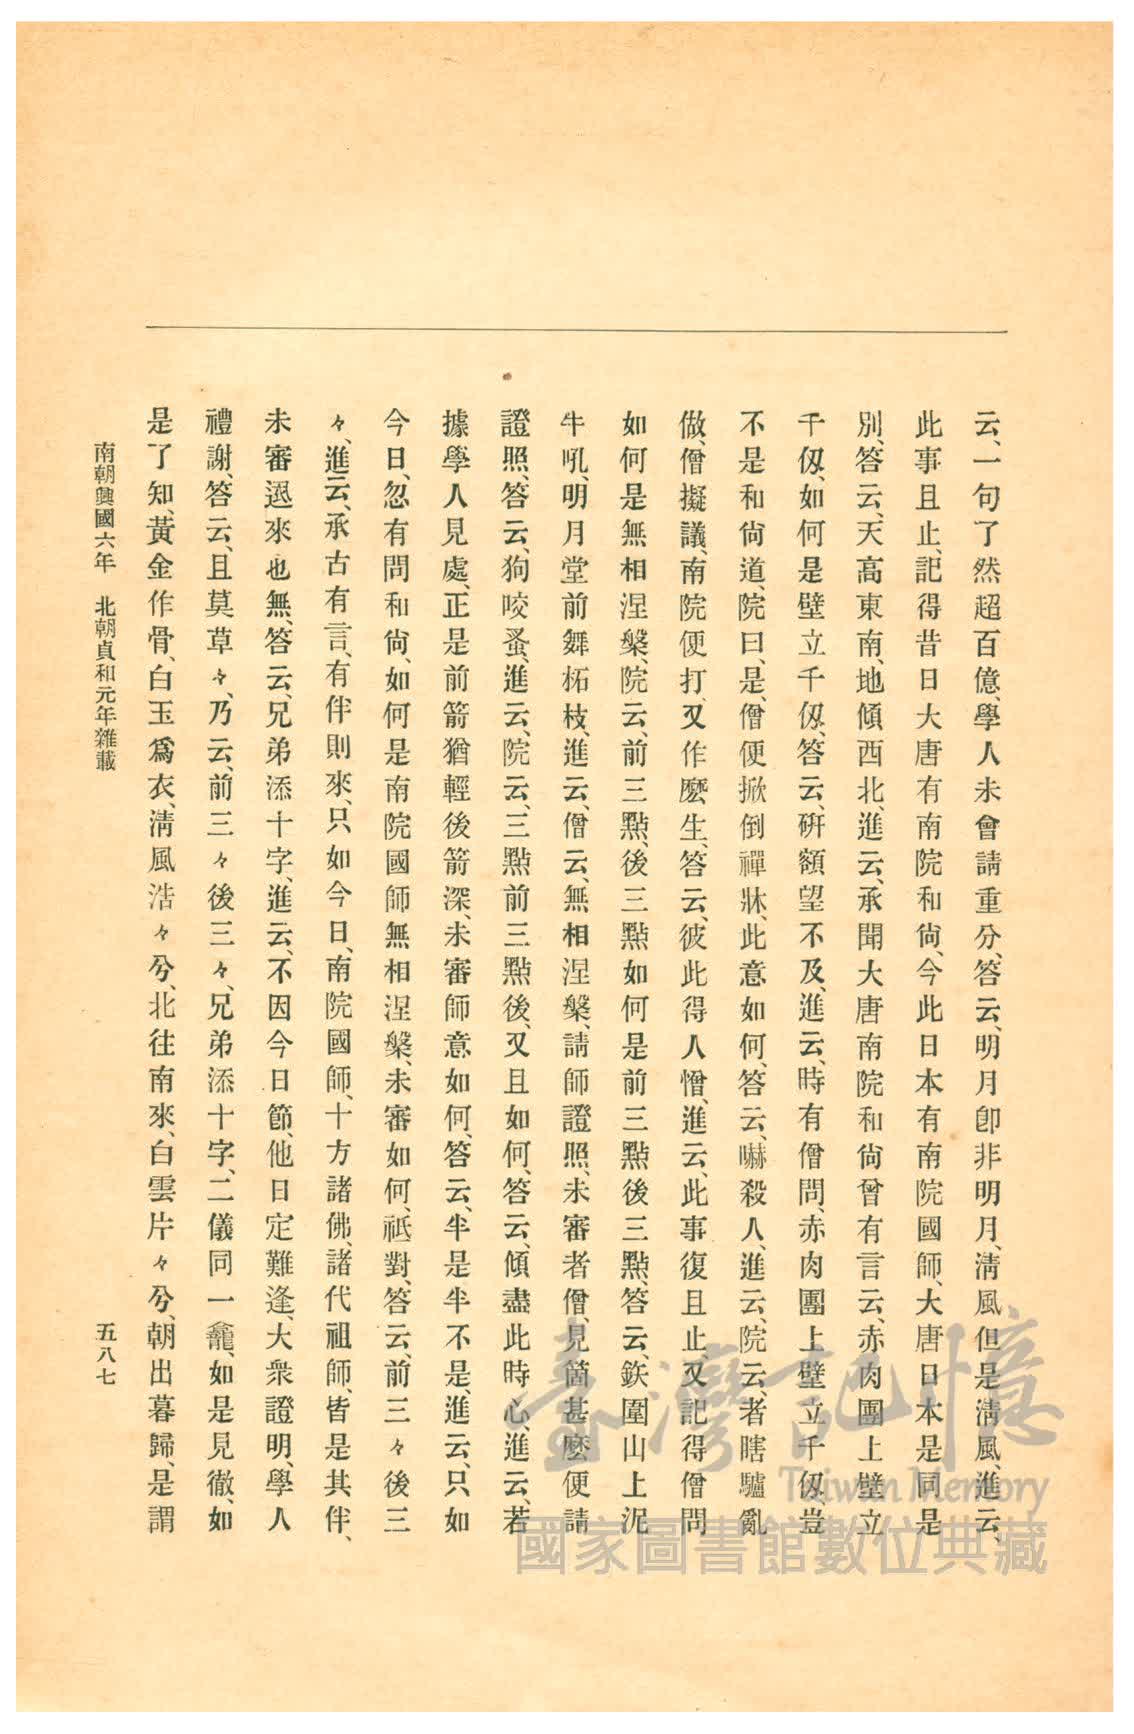 云、一句了然超百億、學人未會請重分、答云、明月卽非明月、淸風但是淸風、進云、
此事且止、記得昔日大唐有南院和尙、今此日本有南院國師、大唐日本是同是
別、答云、天高東南、地傾西北、進云、承聞大唐南院和尙曾有言云、赤肉團上壁立
千仭、如何是壁立千仭、答云、硏額望不及、進云、時有僧問、赤肉團上壁立千仭豈
不是和尙道、院曰、是、僧便掀倒禪牀、此意如何、答云、嚇殺人、進云、院云、者瞎驢亂
做、僧擬議、南院便打、又作麽生、答云、彼此得人憎、進云、此事復且止、又記得僧問
如何是無相涅槃、院云、前三點、後三點如何是前三點後三點、答云、鉃圍山上泥
牛吼、明月堂前舞柘枝、進云、僧云、無相涅槃、請師證照、未審者僧、見箇甚麽便請
證照、答云、狗咬蚤、進云、院云、三點前三點後、又且如何、答云、傾盡此時心、進云、若
據學人見處、正是前箭猶輕後箭深、未審師意如何、答云、半是半不是、進云、只如
今日、忽有問和尙、如何是南院國師無相涅槃、未審如何、祗對、答云、前三々後三
々、進云、承古有言、有伴則來、只如今日、南院國師、十方諸佛、諸代祖師、皆是其伴、
未審還來也無、答云、兄弟添十字、進云、不因今日節、他日定難逢、大衆證明、學人
禮謝、答云、且莫草々、乃云、前三々後三々、兄弟添十字、二儀同一龕、如是見徹、如
是了知、黃金作骨、白玉爲衣、淸風浩々兮、北往南來、白雲片々兮、朝出暮歸、是謂
南朝興國六年　北朝貞和元年雜載
五八七
臺灣記憶
Taiwan Memory
國家圖書館數位典藏